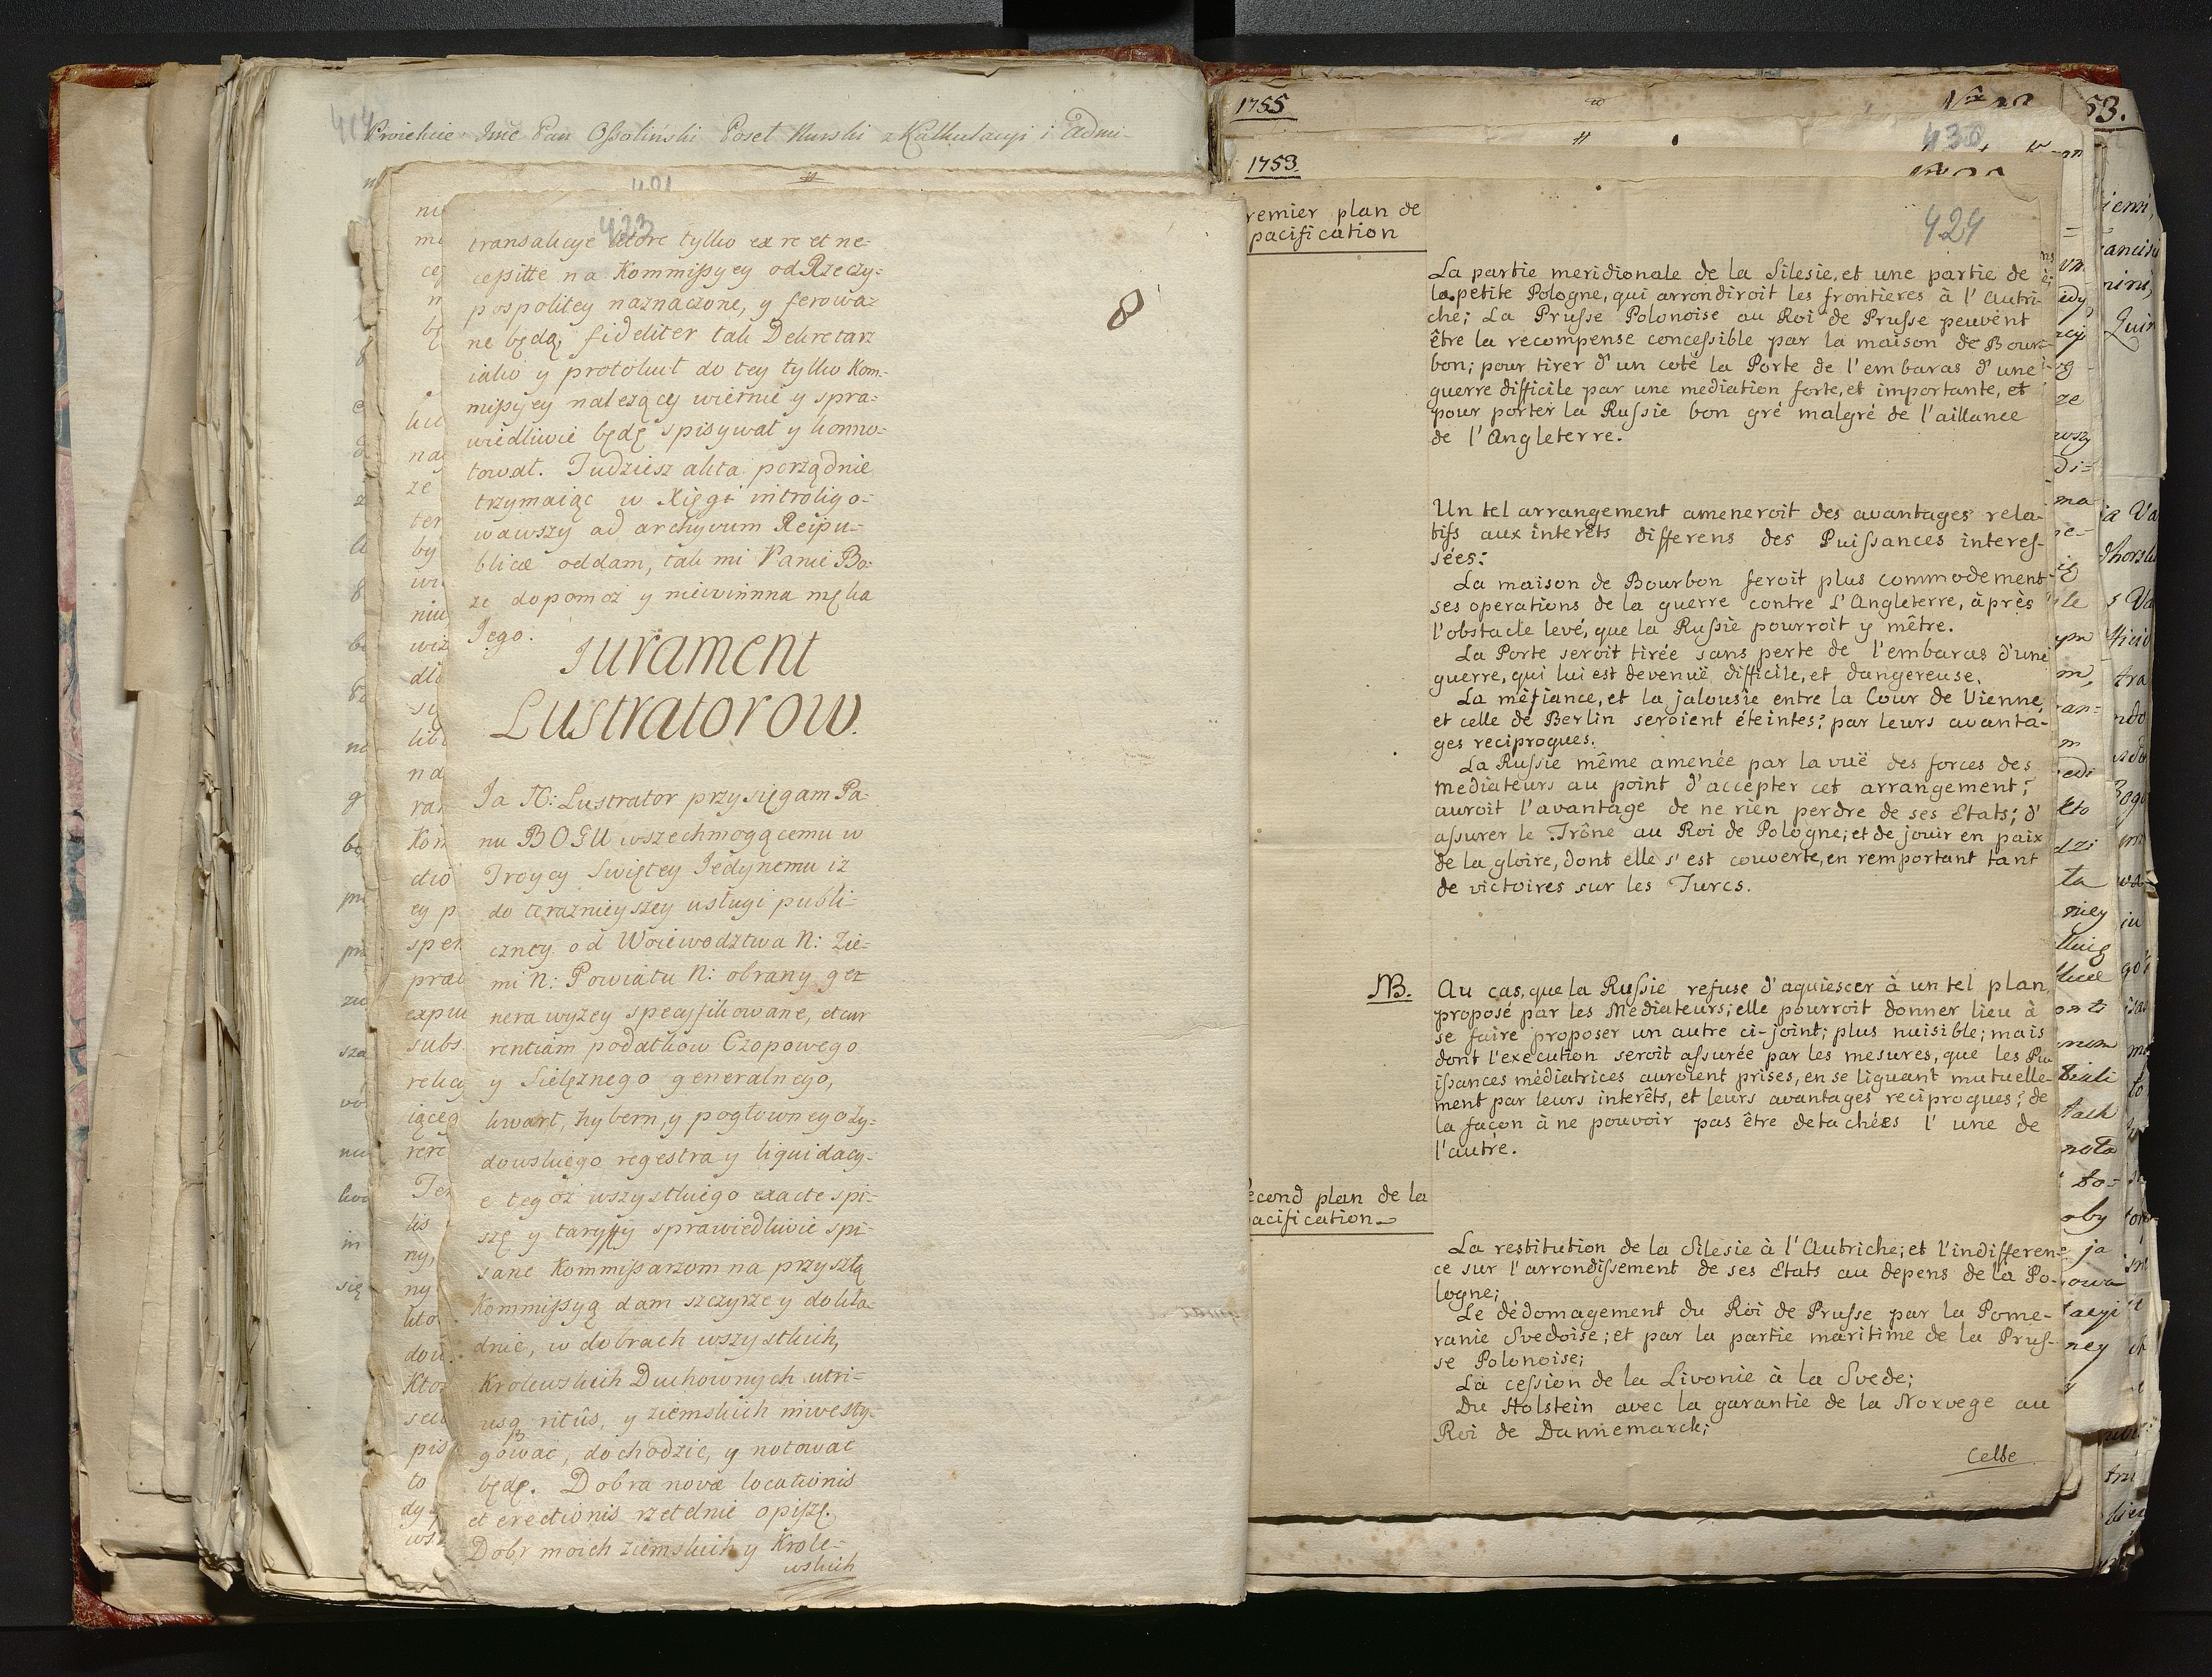 414
Proiekcie Imć Pan Ossoliński Poseł Nurski z Kalkulacyi i Admi-
421
423
transakcye które tylko ex re et ne-
cessitte na Kommissyey od Rzeczy-
pospolitey naznaczone, y ferowaz
ne będą, fideliter tak Dekretarz
iako y protokuł do tey tylko Kom-
missyey nalezący wiernie y spra-
wiedliwie będę spisywał y konno-
tował. Tudziesz akta porządnie
trzymaiąc w Xięgi introligo-
wawszy ad archyvum Reipu-
blicæ oddam, tak mi Panie Bo-
ze dopomoz y niewinnna męka
Jego.
Jurament
Lustratorow.
Ja N: Lustrator przysięgam Pa-
nu BOGU wszechmogącemu w
Troycy Swiętey Jedynemu iz
do teraznieyszey usługi publi-
czney od Woiewodztwa N: Zie-
mi N: Powiatu N: obrany ge-
nera wyzey specyfikowane, et cur
rentiam podatkow Czopowego
y Sielęznego generalnego,
kwart, hybern, y pogłownego Zy-
dowskiego regestra y liquidacy-
e tegoż wszystkiego exacte spi-
szę y taryffy sprawiedliwie spi-
sane Kommissarzom na przyszłą
Kommissyą dam szczyrze y dokła-
dnie, w dobrach wszystkich,
Krolewskich Duchownych utri-
usq ritûs, y ziemskich inwesty-
gowac, dochodzic, y notowac
będę. Dobra novæ locationis
et erectionis rzetelnie opiszę.
Dobr moich ziemskich y Krole-
wskich
8
1755
1753
53.
430
424
remier plan de
pacification
La partie meridionale de la Silesie, et une partie de
la petite Pologne, qui arrondiroit les frontieres à l'Autri-
che; La Prusse Polonoise au Roi de Prusse peuvent
être la recompense concessible par la maison de Bour-
bon; pour tirer d'un coté la Porte de l'embaras d'une
guerre difficile par une mediation forte, et importante, et
pour porter la Russie bon gré malgré de l'aillance
de l'Angleterre.
Un tel arrangement ameneroit des avantages rela-
tifs aux interêts differens des Puissances interes-
sées:
La maison de Bourbon feroit plus commodement
ses operations de la guerre contre L'Angleterre, àprès
l'obstacle levé, que la Russie pourroit y mêtre.
La Porte seroit tirée sans perte de l'embaras d'une
guerre, qui lui est devenuë difficile, et dangereuse.
La mefiance, et la jalousie entre la Cour de Vienne
et celle de Berlin seroient éteintes; par leurs avanta-
ges reciproques.
La Russie même amenée par la vuë des forces des
mediateurs au point d'accepter cet arrangement;
auroit l'avantage de ne rien perdre de ses Etats; d'
assurer le Trône au Roi de Pologne; et de jouir en paix
de la gloire, dont elle s'est couverte, en remportant tant
de victoires sur les Turcs.
NB. Au cas, que la Russie refuse d'aquiescer à un tel plan,
proposé par les Mediateurs; elle pourroit donner lieu à
se faire proposer un autre ci-joint; plus nuisible; mais
dont l'execution seroit assurée par les mesures, que les Pu
issances médiatrices auroient prises, en se liguant mutuelle-
ment par leurs interêts, et leurs avantages reciproques; de
la façon à ne pouvoir pas être detachées l'une de
l'autre.
econd plan de la
acification
La restitution de la Silesie à l'Autriche; et l'indifferen-
ce sur l'arrondissement de ses Etats au depens de la Po-
logne;
Le dédomagement du Roi de Prusse par la Pome-
ranie Svedoise; et par la partie maritime de la Prus-
se Polonoise;
La cession de la Livonie à la Svede;
Du Holstein avec la garantie de la Norvege au
Roi de Dannemarck;
Celle